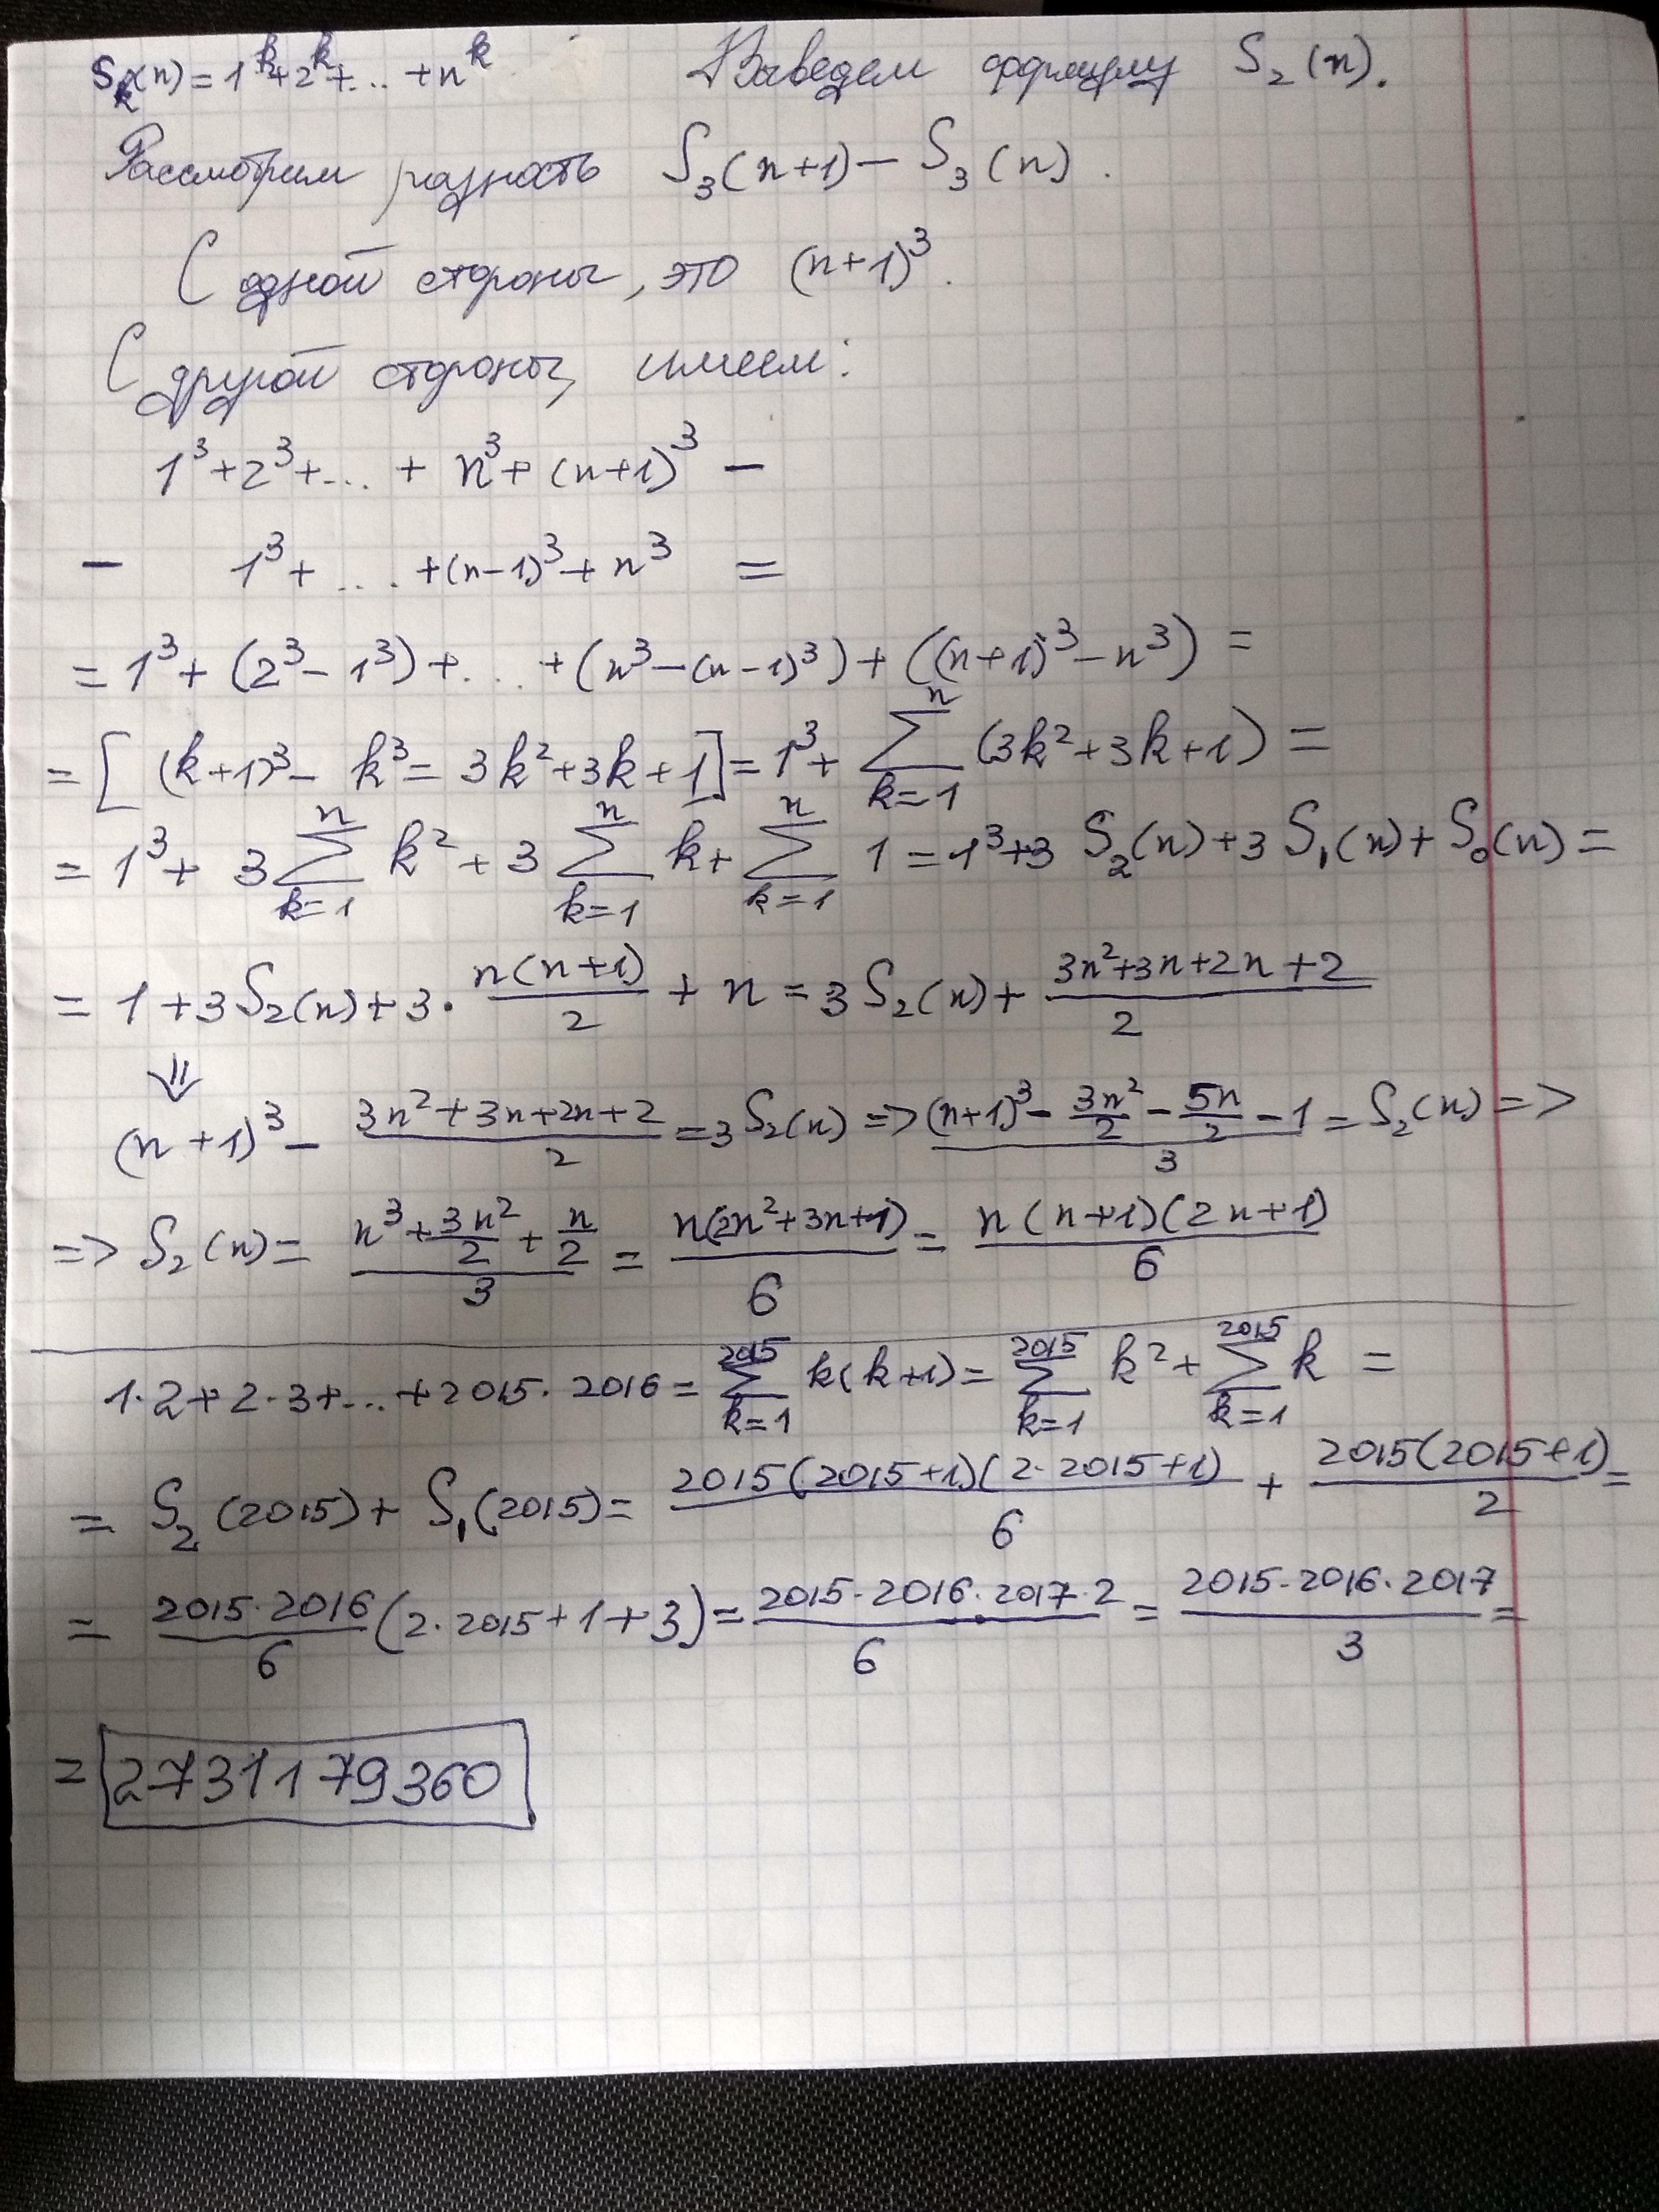 S_k(n) = 1^k + 2^k + ... + n^k Выведем формулу S_2(n).
Рассмотрим разность S_3(n+1) - S_3(n).
С одной стороны, это (n+1)^3.
С другой стороны, имеем:
1^3 + 2^3 + ... + n^3 + (n+1)^3 -
- 1^3 + ... + (n-1)^3 + n^3 =
= 1^3 + (2^3 - 1^3) + ... + (n^3 - (n-1)^3) + ((n+1)^3 - n^3) =
= [(k+1)^3 - k^3 = 3k^2 + 3k + 1] = 1^3 + ∑_{k=1}^{n} (3k^2 + 3k + 1) =
= 1^3 + 3 ∑_{k=1}^{n} k^2 + 3 ∑_{k=1}^{n} k + ∑_{k=1}^{n} 1 = 1^3 + 3 S_2(n) + 3 S_1(n) + S_0(n) =
= 1 + 3 S_2(n) + 3 · \frac{n(n+1)}{2} + n = 3 S_2(n) + \frac{3n^2 + 3n + 2n + 2}{2}
⇓
(n+1)^3 - \frac{3n^2 + 3n + 2n + 2}{2} = 3 S_2(n) => \frac{(n+1)^3 - \frac{3n^2}{2} - \frac{5n}{2} - 1}{3} = S_2(n) =>
=> S_2(n) = \frac{n^3 + \frac{3n^2}{2} + \frac{n}{2}}{3} = \frac{n(2n^2 + 3n + 1)}{6} = \frac{n(n+1)(2n+1)}{6}
1·2 + 2·3 + ... + 2015·2016 = ∑_{k=1}^{2015} k(k+1) = ∑_{k=1}^{2015} k^2 + ∑_{k=1}^{2015} k =
= S_2(2015) + S_1(2015) = \frac{2015(2015+1)(2·2015+1)}{6} + \frac{2015(2015+1)}{2} =
= \frac{2015·2016}{6} (2·2015 + 1 + 3) = \frac{2015·2016·2017·2}{6} = \frac{2015·2016·2017}{3} =
= 2731179360